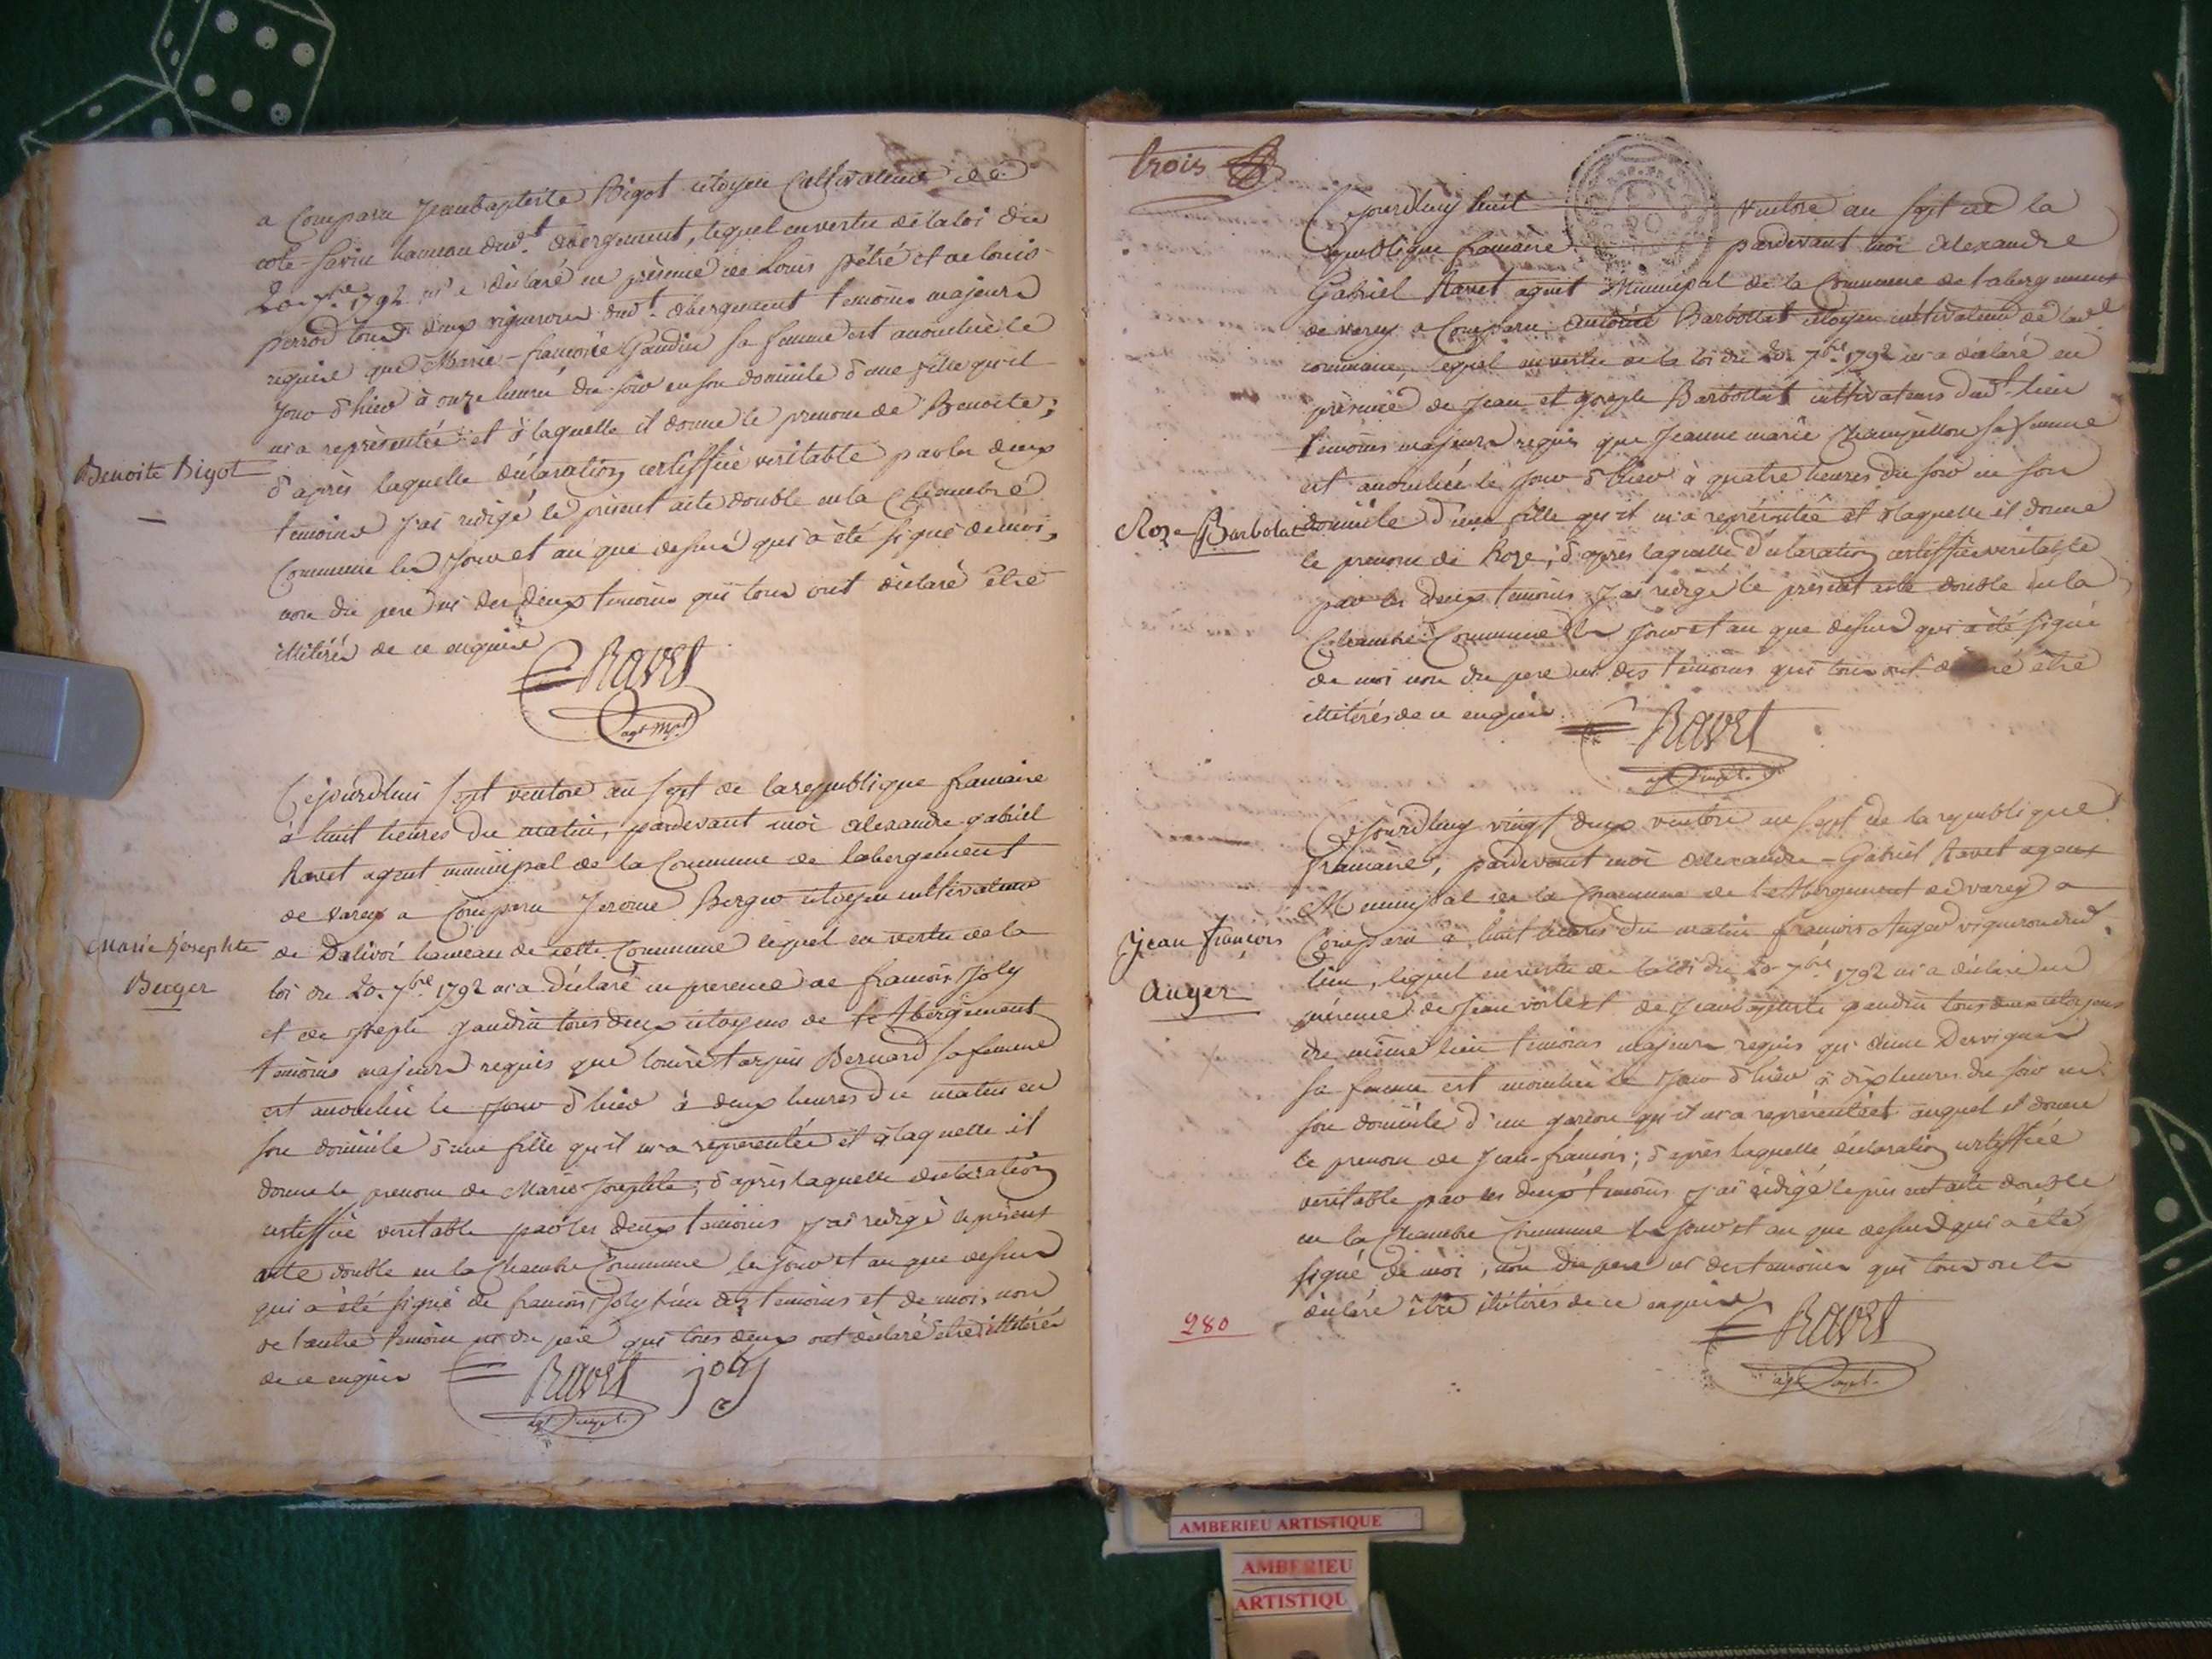 a Comparu Jeanbaptiste Bigot citoyen Cultivateur de
cote-savin hameau dud.t abergement, lequel en vertu de la loi du
20. 7bre 1792 m'a déclaré en présence de Louis pétré et de louis
perrod tous deux vignerons dud.t abergement temoins majeurs
requis que Marie-françoise Gaudin sa femme est accouchée le
jour d'hier à onze heures du soir en son domicile d'une fille qu'il
m'a représentée et à laquelle il donne le prenom de Benoite;
Benoite Bigot
d'après laquelle déclaration certiffiée veritable par les deux
temoins j'ai rédigé le présent acte double en la Chambre
Commune les jour et an que dessus qui a été signé de moi,
non du pere ni des deux temoins qui tous ont déclaré être
illitérés de ce enquis
Ravet
agt Mpal
Cejourdhui sept ventose an sept de la republique francaise
à huit heures du matin, pardevant moi alexandre gabriel
Ravet agent municipal de la Commune de labergement
de varey a Comparu Jerome Berger citoyen cultivateur
Marie Josephte
Berger
de Dalivoi hameau de cette Commune lequel en vertu de la
loi du 20. 7bre 1792 m'a déclaré en presence de francois Joly
et de joseph gaudin tous deux citoyens de l'Abergement
temoins majeurs requis que Bernard sa femme
est accouchée le jour d'hier à deux heures du matin en
son domicile d'une fille qu'il m'a representée et à laquelle il
donne le prenom de Marie Josephte; d'après laquelle declaration
certiffiée veritable par les deux temoins j'ai redigé le présent
acte double en la Chambre Commune les jour et an que dessus
qui a été signé de francois Joly l'un des temoins et de moi, non
de l'autre temoin ni du pere qui tous deux ont déclaré être illitérés
de ce enquis
Ravet joly
agt
trois
Cejourdhuy huit ventose an sept de la
republique francaise pardevant moi alexandre
Gabriel Ravet agent Municipal de la Commune de labergement
de varey a Comparu antoine Barbollat citoyen cultivateur de lad.e
commune, lequel en vertu de la loi du 20. 7bre 1792 m'a déclaré en
présence de Jean et joseph Barbollat cultivateurs dud.t lieu
temoins majeurs requis que Jeanne marie sa femme
est accouchée le jour d'hier à quatre heures du soir en son
Roze Barbolat
domicile d'une fille qu'il m'a représentée et à laquelle il donne
le prenom de Roze; d'après laquelle déclaration certiffiée veritable
par les deux temoins j'ai redigé le présent acte double en la
Chambre Commune les jour et an que dessus qui a été signé
de moi non du pere ni des temoins qui tous ont déclaré être
illitérés de ce enquis.
Ravet
agt
Cejourdhuy vingt deux ventose an sept de la republique
francaise, pardevant moi alexandre-Gabriel Ravet agent
Municipal de la Commune de l'Abergement de varey a
Jean françois
Auger
Comparu à huit heures du matin francois Auger vigneron dud.t
lieu, lequel en vertu de la loi du 20. 7bre 1792 m'a déclaré en
présence de Jean et de Jeanbaptiste gaudin tous deux citoyens
du même lieu temoins majeurs requis qu'anne Dervignes
sa femme est accouchée le jour d'hier à dix heures du soir en
son domicile d'un garcon qu'il m'a représenté et auquel il donne
le prenom de Jean-francois; d'après laquelle déclaration certiffiée
veritable par les deux temoins j'ai rédigé le présent acte double
en la Chambre Commune les jour et an que dessus qui a été
signé de moi, non du pere ni des temoins qui tous ont
déclaré être illitérés de ce enquis
280
Ravet
agt
AMBERIEU ARTISTIQUE
AMBERIEU
ARTISTIQU